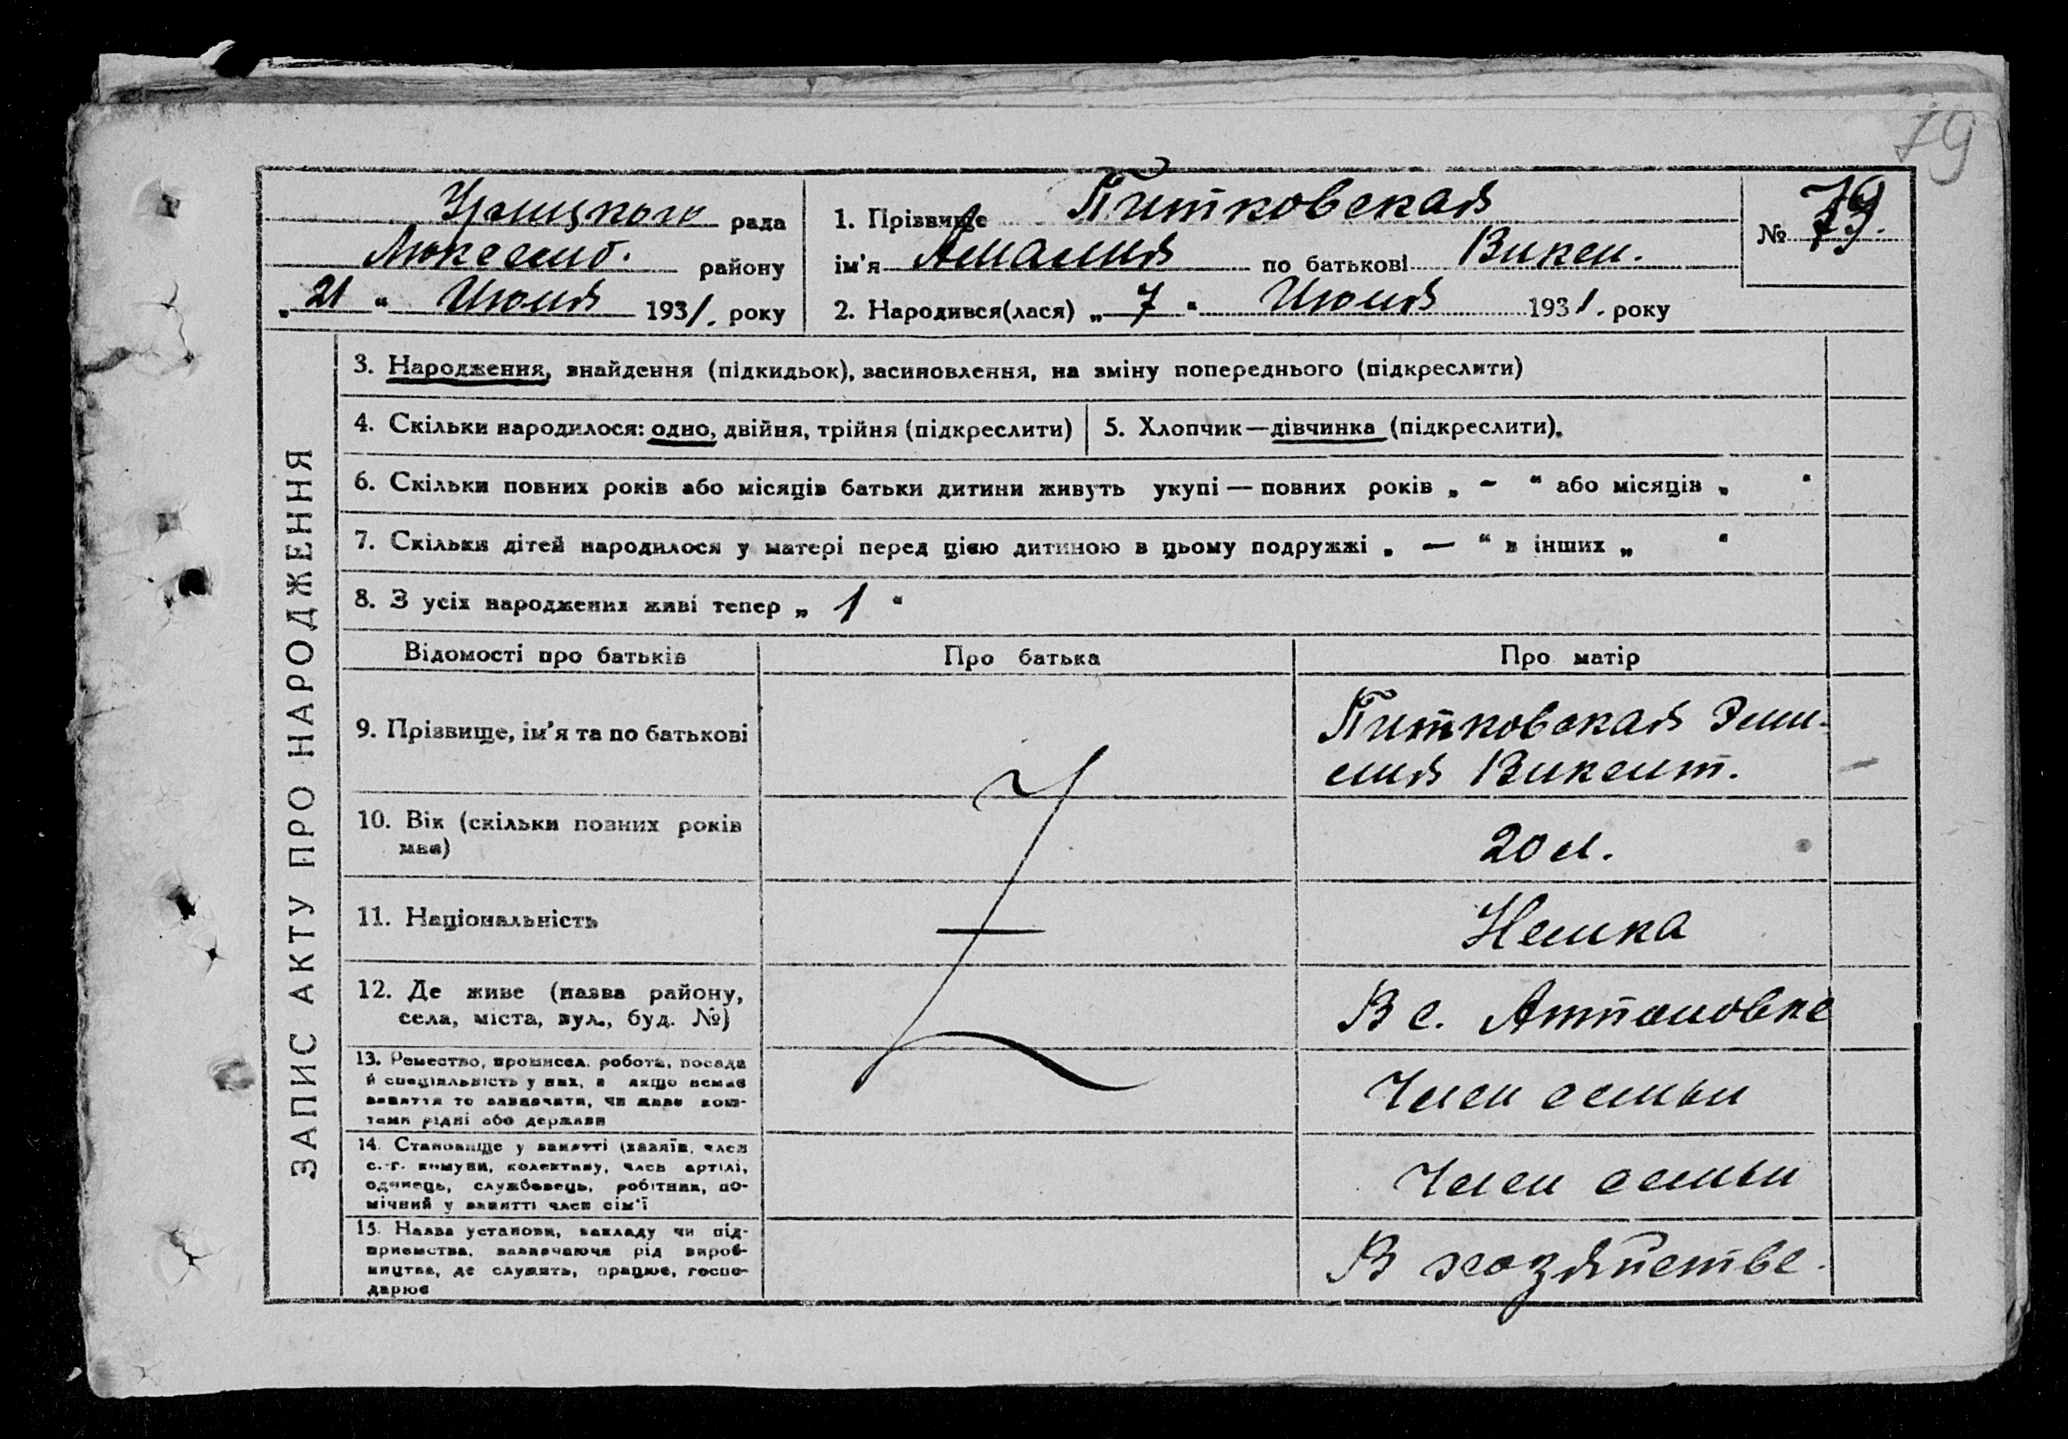 79
Урицкого рада
Люксемб. району
„21“ Июля 1931. року
1. Прізвище Питковская
ім'я Амалия по батькові Викен.
2. Народився(лася) „7“ Июля 1931. року
№ 79.
ЗАПИС АКТУ ПРО НАРОДЖЕННЯ
3. Народження, знайдення (підкидьок), засиновлення, на зміну попереднього (підкреслити)
4. Скільки народилося: одно, двійня, трійня (підкреслити)
5. Хлопчик—дівчинка (підкреслити).
6. Скільки повних років або місяців батьки дитини живуть укупі — повних років „ – “ або місяців „ “
7. Скільки дітей народилося у матері перед цією дитиною в цьому подружжі „ — “ в інших „ “
8. З усіх народжених живі тепер „ 1 “
Відомості про батьків
Про батька
Про матір
9. Прізвище, ім'я та по батькові
Питковская Эми-
лия Викент.
10. Вік (скільки повних років
має)
20 л.
11. Національність
Немка
12. Де живе (назва району,
села, міста, вул., буд. №)
В с.
13. Ремество, промисел, робота, посада
й спеціяльність у них, а якщо немає
заняття то зазначити, чи живе кош-
тами рідні або держави
Член семьи
14. Становище у занятті (хазяїн, член
с.-г. комуни, колективу, член артілі,
одинець, службовець, робітник, по-
мічний у занятті член сім'ї
Член семьи
15. Назва установи, закладу чи під-
приємства, зазначаючи рід вироб-
ництва, де служить, працює, госпо-
дарює
В хозяйстве.